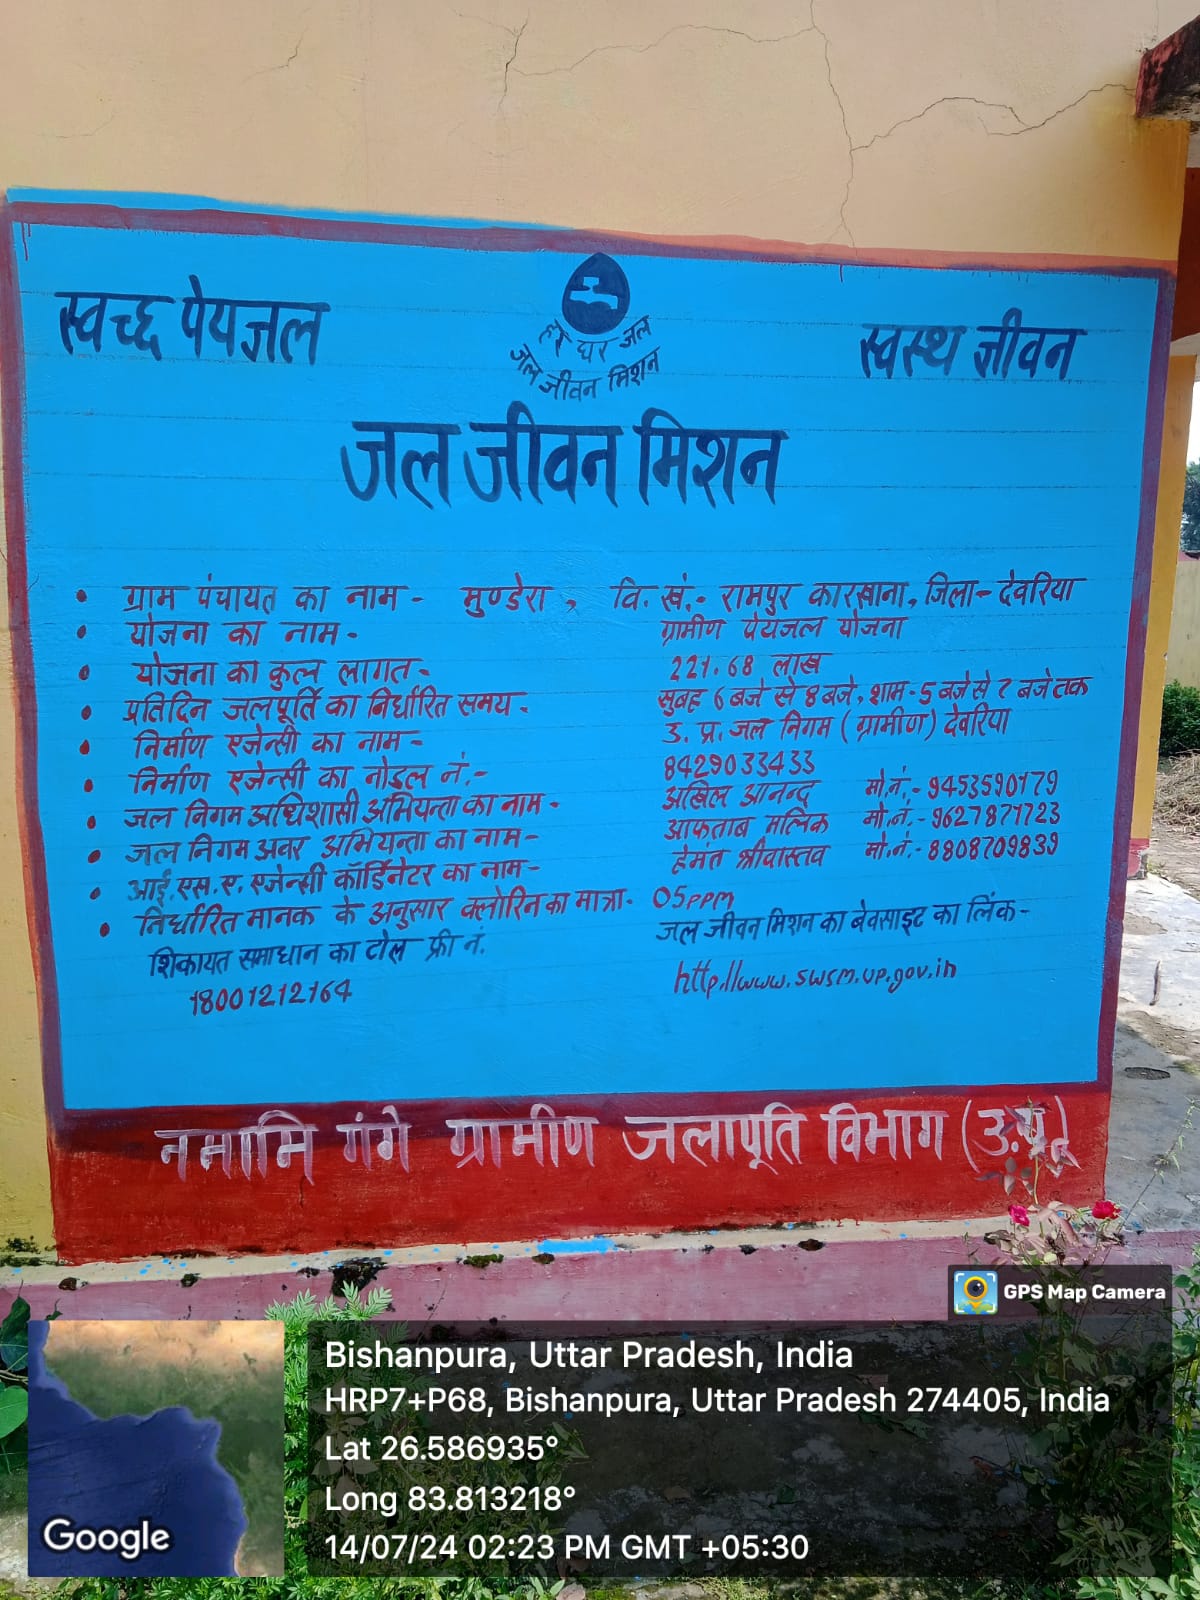 स्वच्छ पेयजल
हर घर जल
जल जीवन मिशन
स्वस्थ जीवन
जल जीवन मिशन
• ग्राम पंचायत का नाम - मुण्डेरा, वि. खं.- रामपुर कारखाना, जिला- देवरिया
• योजना का नाम - ग्रामीण पेयजल योजना
• योजना का कुल लागत- 221.68 लाख
• प्रतिदिन जलपूर्ति का निर्धारित समय- सुबह 6 बजे से 8 बजे, शाम- 5 बजे से 7 बजे तक
• निर्माण एजेन्सी का नाम - उ. प्र. जल निगम (ग्रामीण) देवरिया
• निर्माण एजेन्सी का नोडल नं.- 8429033433
• जल निगम अधिशासी अभियन्ता का नाम- अखिल आनन्द मो.नं.- 9453590179
• जल निगम अवर अभियन्ता का नाम- आफताब मलिक मो.नं.- 9627871723
• आई.एस.ए. एजेन्सी कॉर्डिनेटर का नाम- हेमंत श्रीवास्तव मो.नं.- 8808709839
• निर्धारित मानक के अनुसार क्लोरिन का मात्रा- 05ppm
शिकायत समाधान का टोल फ्री नं.
18001212164
जल जीवन मिशन का बेवसाइट का लिंक-
http//www.swsm.up.gov.in
नमामि गंगे ग्रामीण जलापूर्ति विभाग (उ.प्र.)
GPS Map Camera
Bishanpura, Uttar Pradesh, India
HRP7+P68, Bishanpura, Uttar Pradesh 274405, India
Lat 26.586935°
Long 83.813218°
14/07/24 02:23 PM GMT +05:30
Google